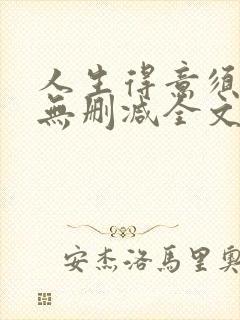 人生得意须
無删减全文
安杰洛馬里奥